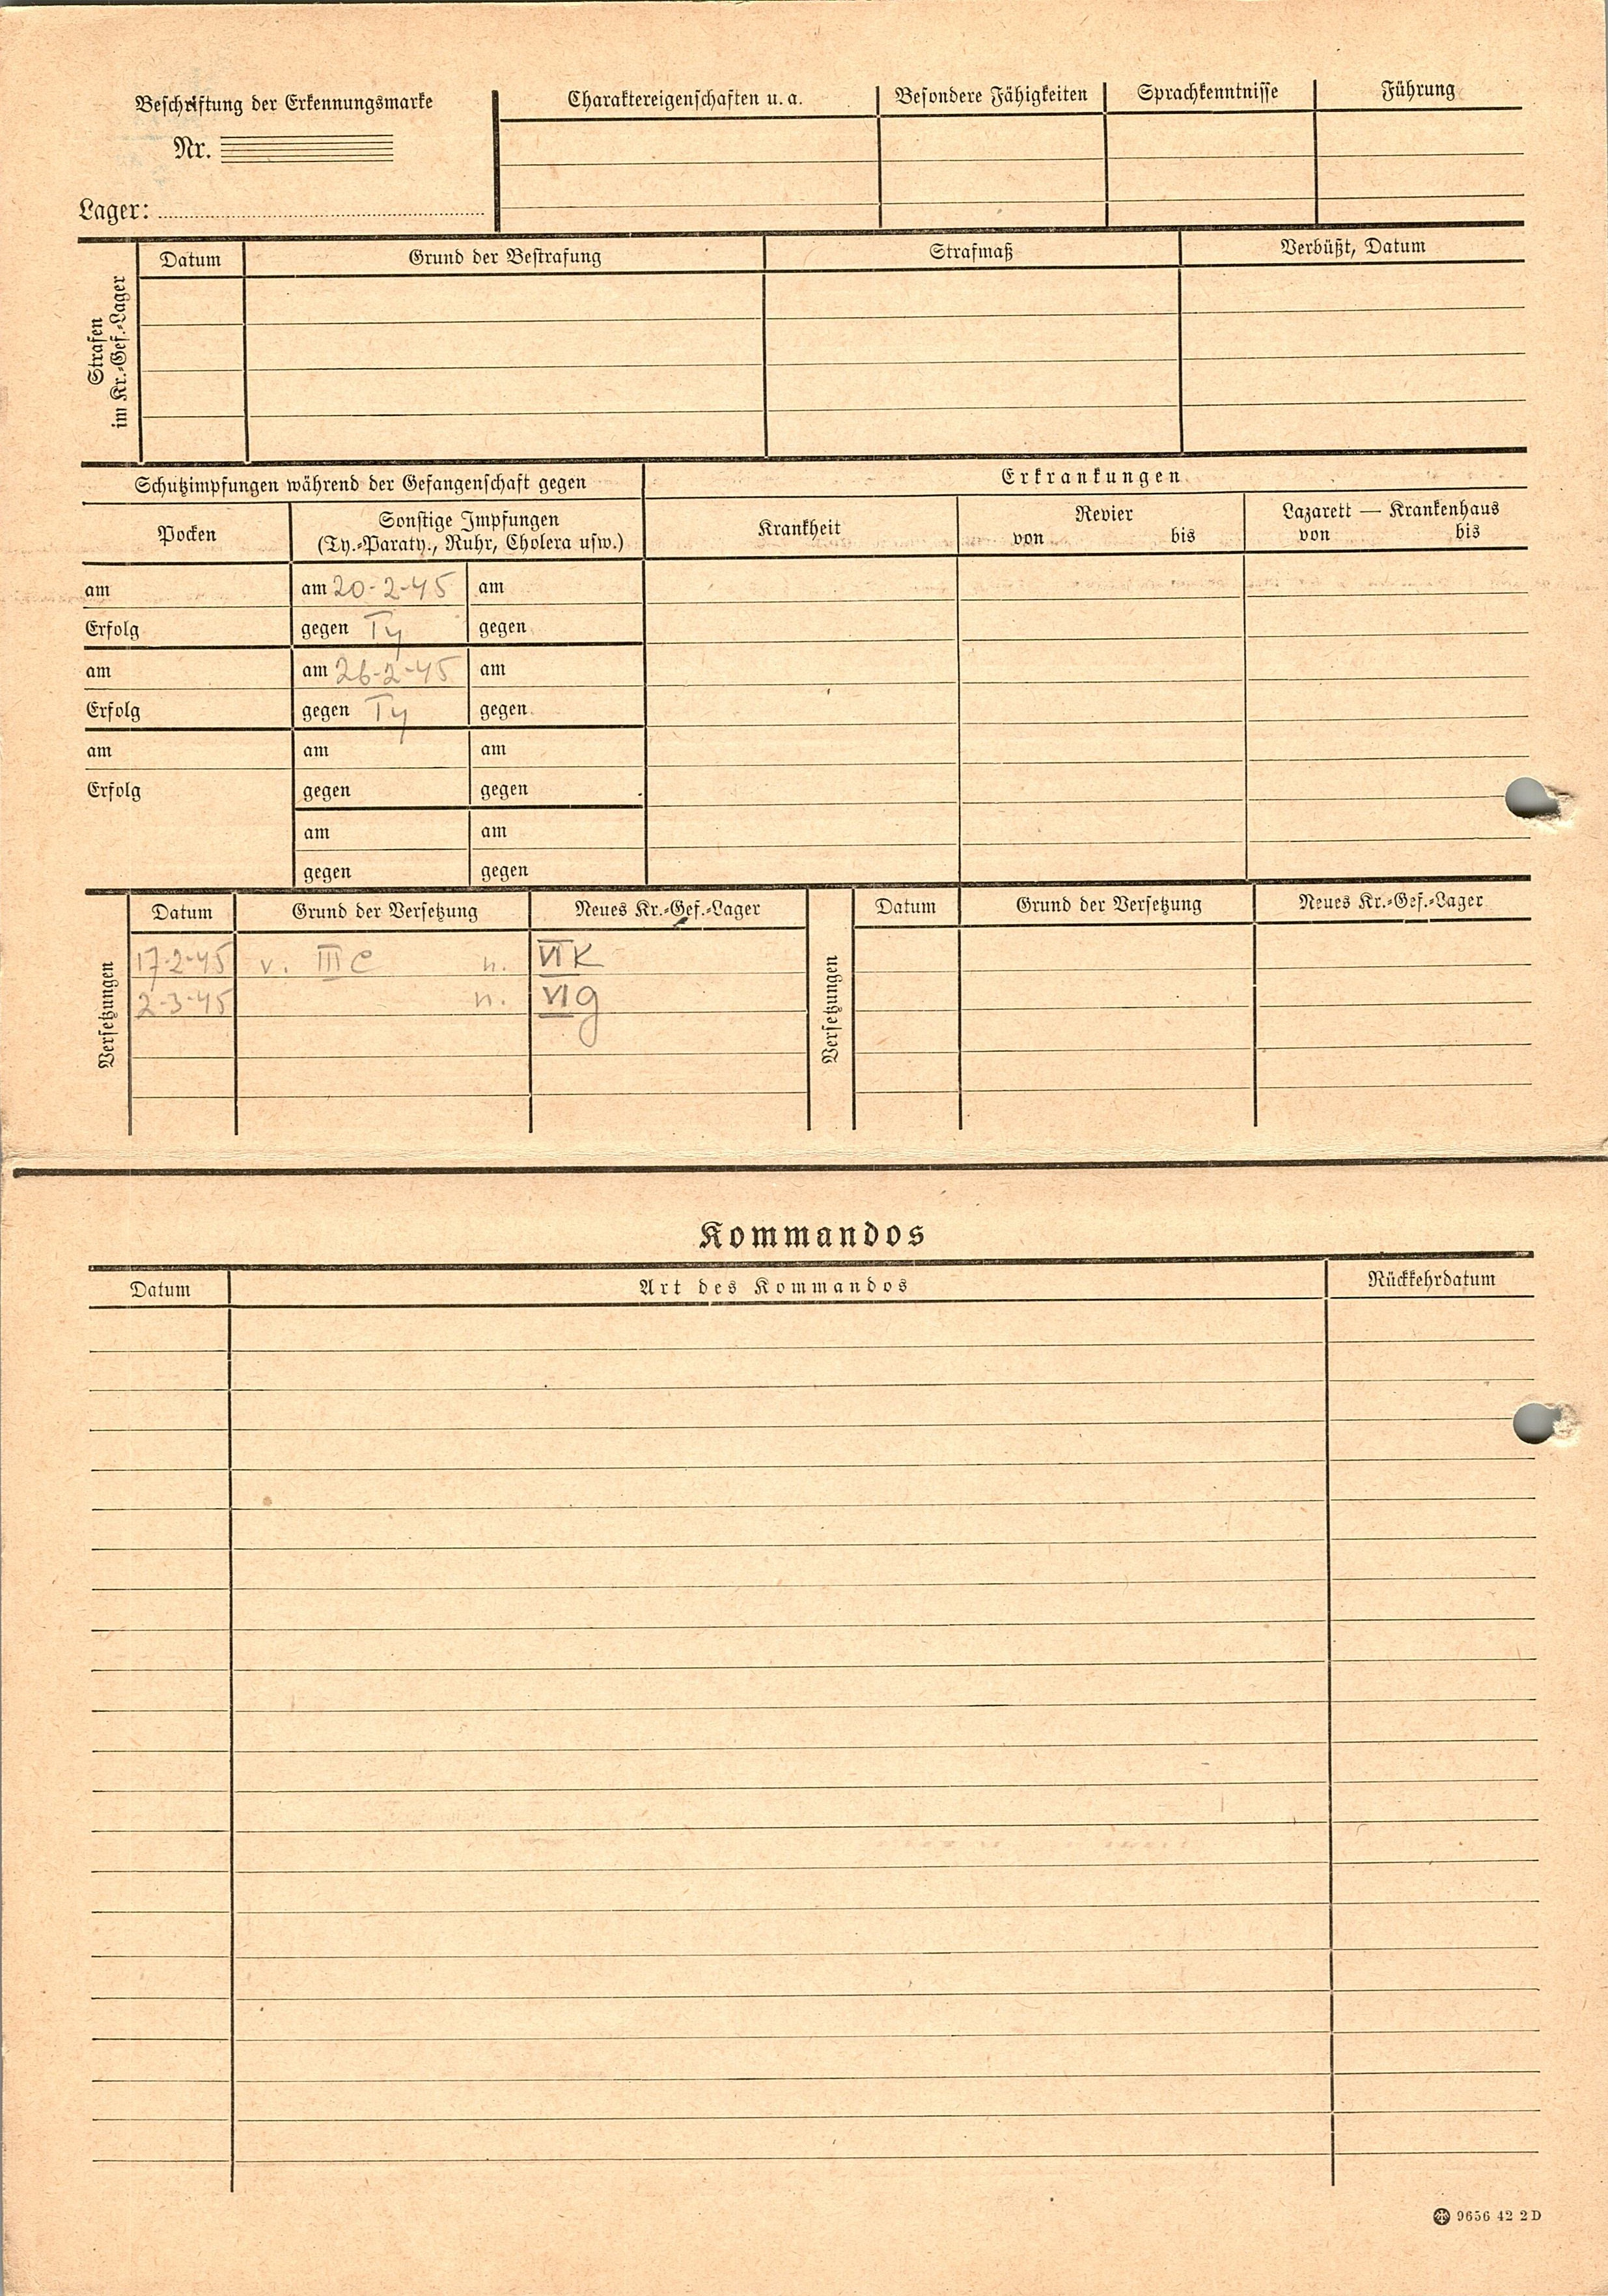 Beschriftung der Erkennungsmarke
Nr.
Lager:
Charaktereigenschaften u. a. Besondere Fähigkeiten Sprachkenntnisse Führung
Strafen
im Kr.-Gef.-Lager
Datum Grund der Bestrafung Strafmaß Verbüßt, Datum
Schutzimpfungen während der Gefangenschaft gegen
Erkrankungen
Pocken
Sonstige Impfungen
(Ty.-Paraty., Ruhr, Cholera usw.)
Krankheit
Revier
von bis
Lazarett — Krankenhaus
von bis
am am 20-2-45 am
Erfolg gegen Ty gegen
am am 26-2-45 am
Erfolg gegen Ty gegen
am am am
Erfolg gegen gegen
am am
gegen gegen
Versetzungen
Datum Grund der Versetzung Neues Kr.-Gef.-Lager
17-2-45 v. III C n. VI K
2-3-45 n. VI g
Versetzungen
Datum Grund der Versetzung Neues Kr.-Gef.-Lager
Kommandos
Datum Art des Kommandos Rückkehrdatum
9656 42 2 D